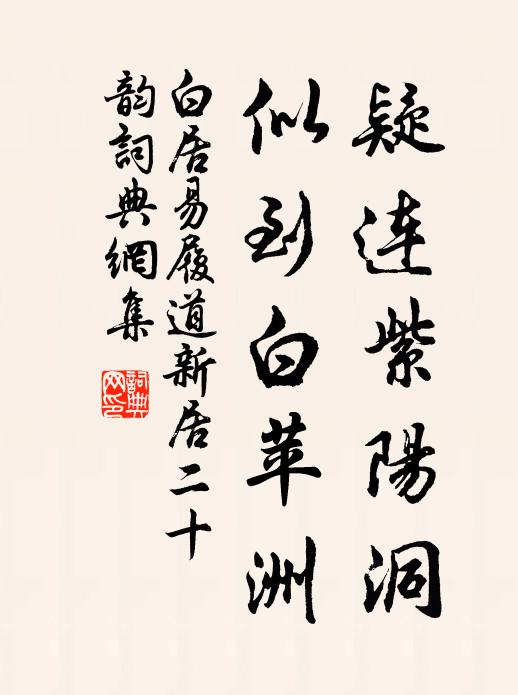 疑连紫陽洞
似到白苹洲
白居易履道新居二十
韵詞典網集
詞典
网印